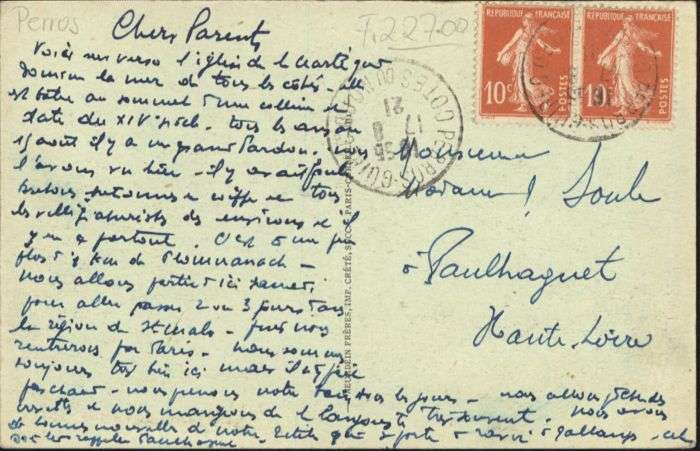 Perros
F. 227.00
Chers Parents
Voici au verso l'église de la
domine la mer de tous les côtés - elle
est bâtie au sommet d'une colline et
date du XIVe siècle. tous les ans au
15 août il y a un grand Pardon. nous
l'avons vu hier - il y avait
Bretonnes en coiffe et tous
les villégiaturistes des environs et il
y en a partout. C'est à un peu
plus d'1 km de Ploumanach -
nous allons partir d'ici samedi
pour aller passer 2 ou 3 jours dans
la région de St Malo - puis nous
rentrerons par Paris - nous sommes
toujours très bien ici mais il
- nous prenons notre tous les jours - nous allons pêcher des
crevettes et nous mangeons de la langouste très souvent. nous avons
de bonnes nouvelles de notre petite qui se porte à ravir à
RÉPUBLIQUE FRANÇAISE
10c POSTES
RÉPUBLIQUE FRANÇAISE
10c POSTES
PERROS-GUIREC
COTES DU NORD
17 8
21
NEURDEIN FRÈRES, IMP. CRÉTÉ, SUCC. PARIS
Monsieur
Madame Soulé
à Paulhaguet
Haute-Loire